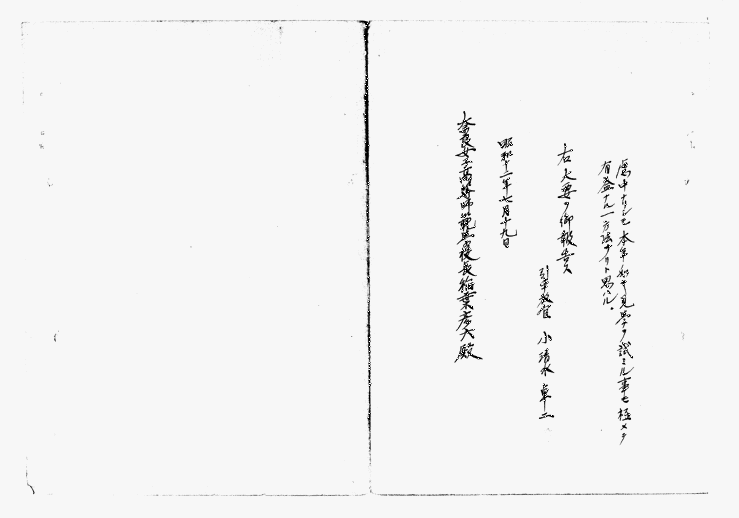 庸中ナリシモ本年如キ見学ヲ試ミル事モ極メテ
有益ナル一方法ナリト思ハル。
右大要ヲ御報告ス
引率教官 小清水卓二
昭和十二年七月十九日
奈良女子高等師範学校長稲葉彦六殿